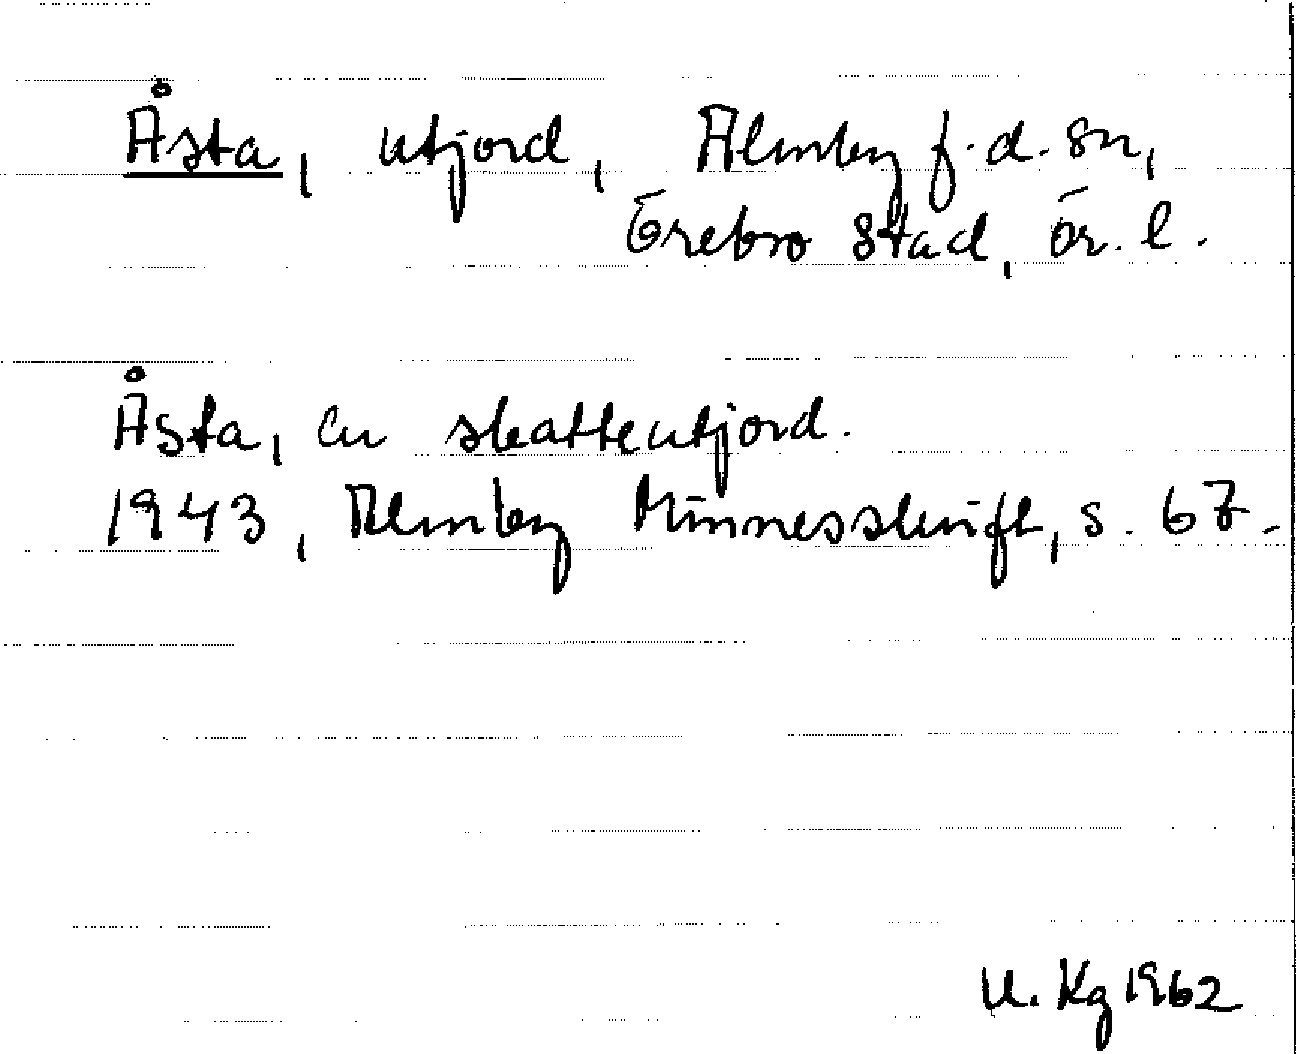 Åsta, utjord, Almby f.d. sn,
Örebro stad, Ör. l.
Åsta, en skatteutjord.
1943, Almby Minnesskrift, s. 67.
U. Kg 1962